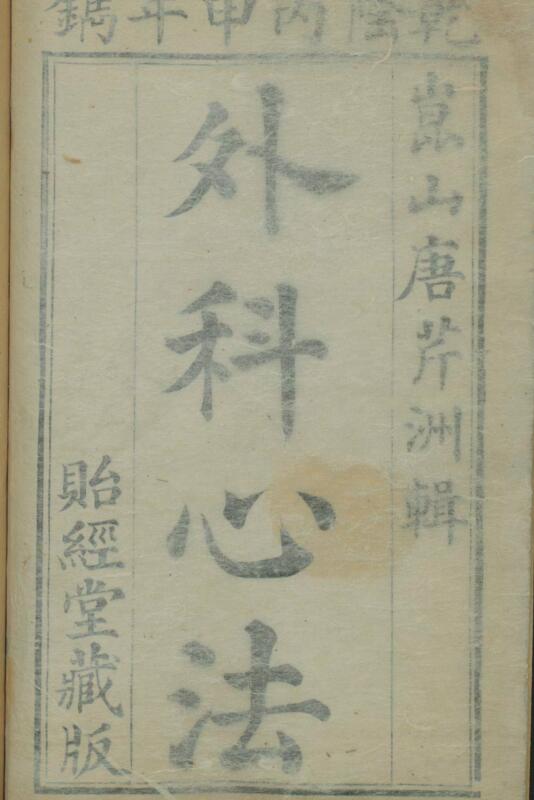 乾隆丙申年鐫
崑山唐芹洲輯
外科心法
貽經堂藏版